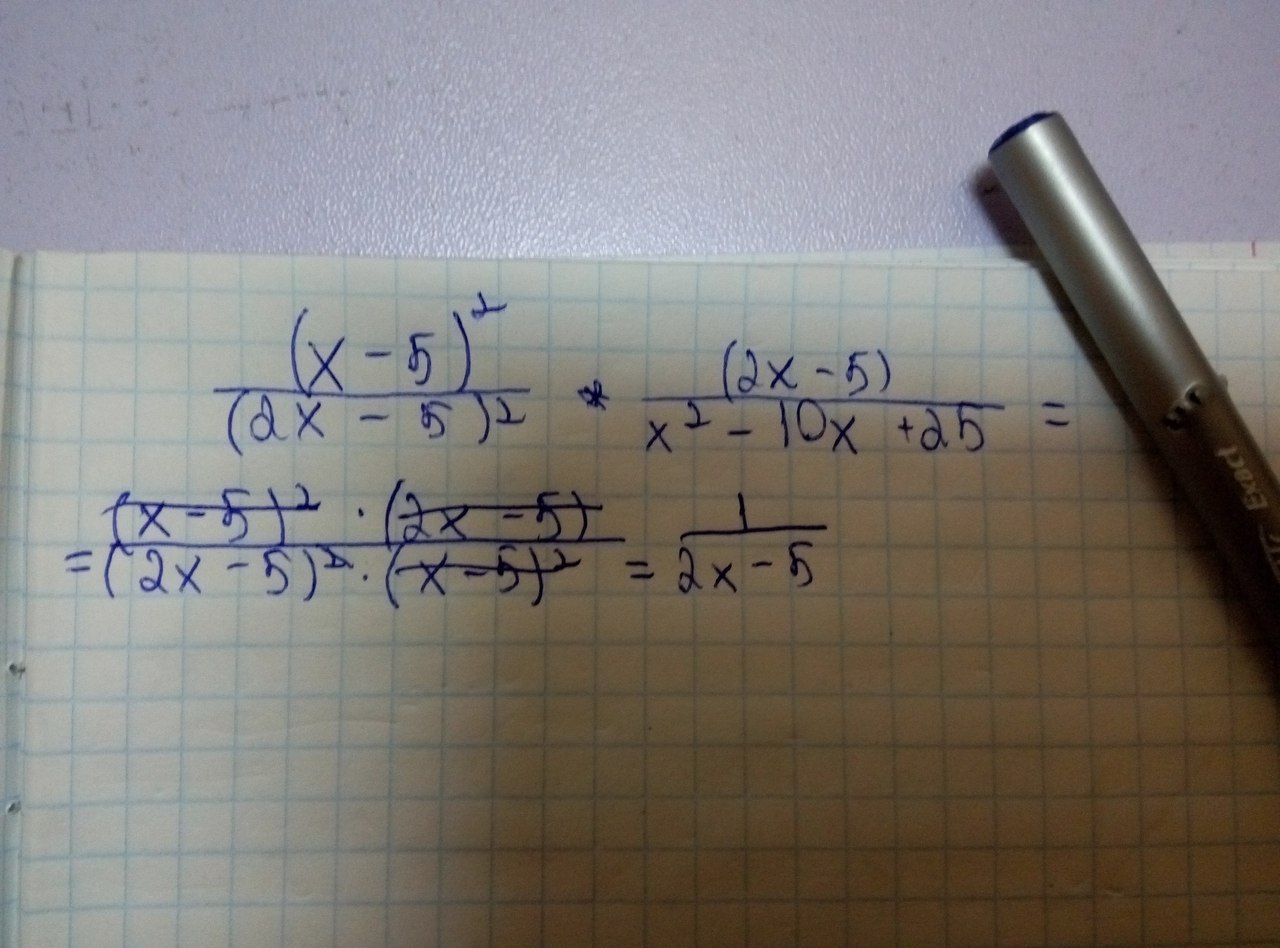 (x - 5)² / (2x - 5)² * (2x - 5) / x² - 10x + 25 =
= (x - 5)² · (2x - 5) / (2x - 5)² · (x - 5)² = 1 / 2x - 5
Exact